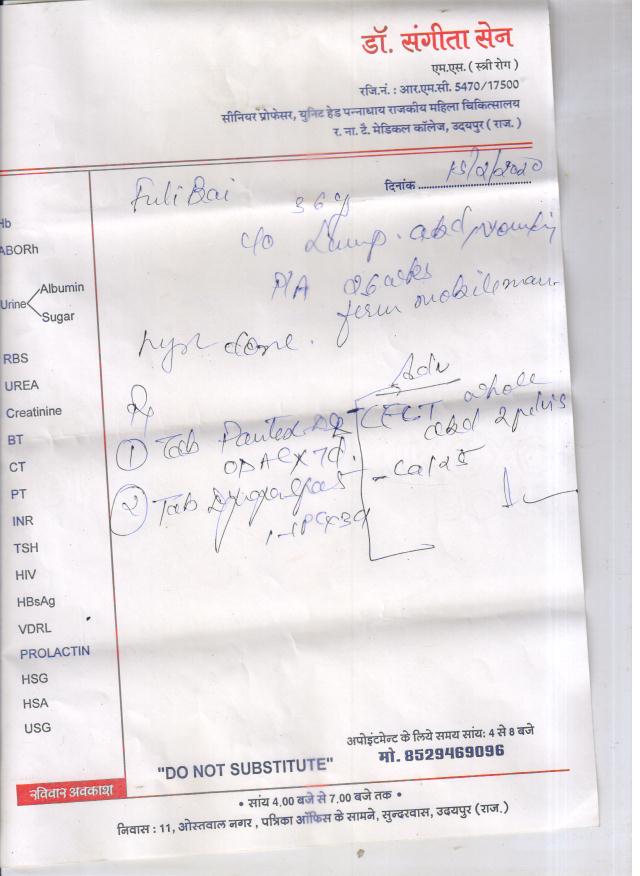 डॉ. संगीता सेन
एम.एस. ( स्त्री रोग )
रजि.नं. : आर.एम.सी. 5470/17500
सीनियर प्रोफेसर, युनिट हेड पन्नाधाय राजकीय महिला चिकित्सालय
र. ना. टै. मेडिकल कॉलेज, उदयपुर ( राज. )
दिनांक
Fuli Bai 36y
c/o Lump abd
P/A
firm mobile
done.
Adv
Rx
① Tab CECT whole
abd & pelvis
OD AC x 7d.
② Tab
Hb
ABORh
Urine Albumin
Sugar
RBS
UREA
Creatinine
BT
CT
PT
INR
TSH
HIV
HBsAg
VDRL
PROLACTIN
HSG
HSA
USG
रविवार अवकाश
अपोइंटमेन्ट के लिये समय सांय: 4 से 8 बजे
मो. 8529469096
"DO NOT SUBSTITUTE"
• सांय 4.00 बजे से 7.00 बजे तक •
निवास : 11, ओस्तवाल नगर , पत्रिका ऑफिस के सामने, सुन्दरवास, उदयपुर (राज.)